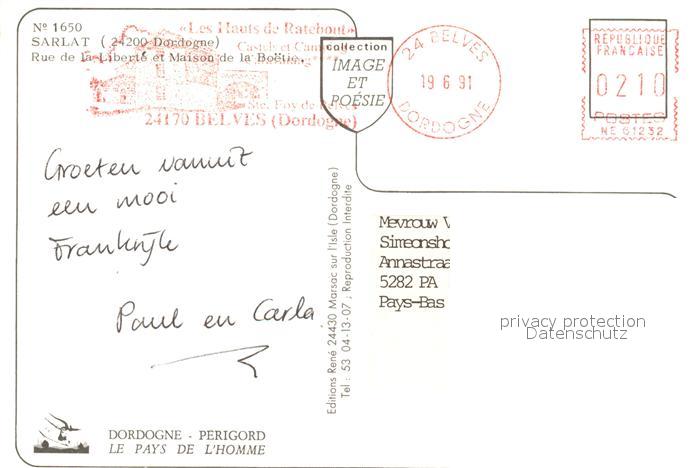 Nº 1650
SARLAT (24200 Dordogne)
Rue de la Liberté et Maison de la Boëtie.
«Les Hauts de Ratebout»
Castels et
Ste. Foy de
24170 BELVES (Dordogne)
collection
IMAGE
ET
POÉSIE
24 BELVES
19 6 91
DORDOGNE
RÉPUBLIQUE
FRANÇAISE
0210
POSTES
NE 61232
Groeten vanuit
een mooi
Frankrijk
Paul en Carla
Editions René 24430 Marsac sur l'Isle (Dordogne)
Tel : 53 04-13-07 ; Reproduction Interdite
Mevrouw V
Simeonsho
Annastraa
5282 PA
Pays-Bas
privacy protection
Datenschutz
DORDOGNE - PERIGORD
LE PAYS DE L'HOMME